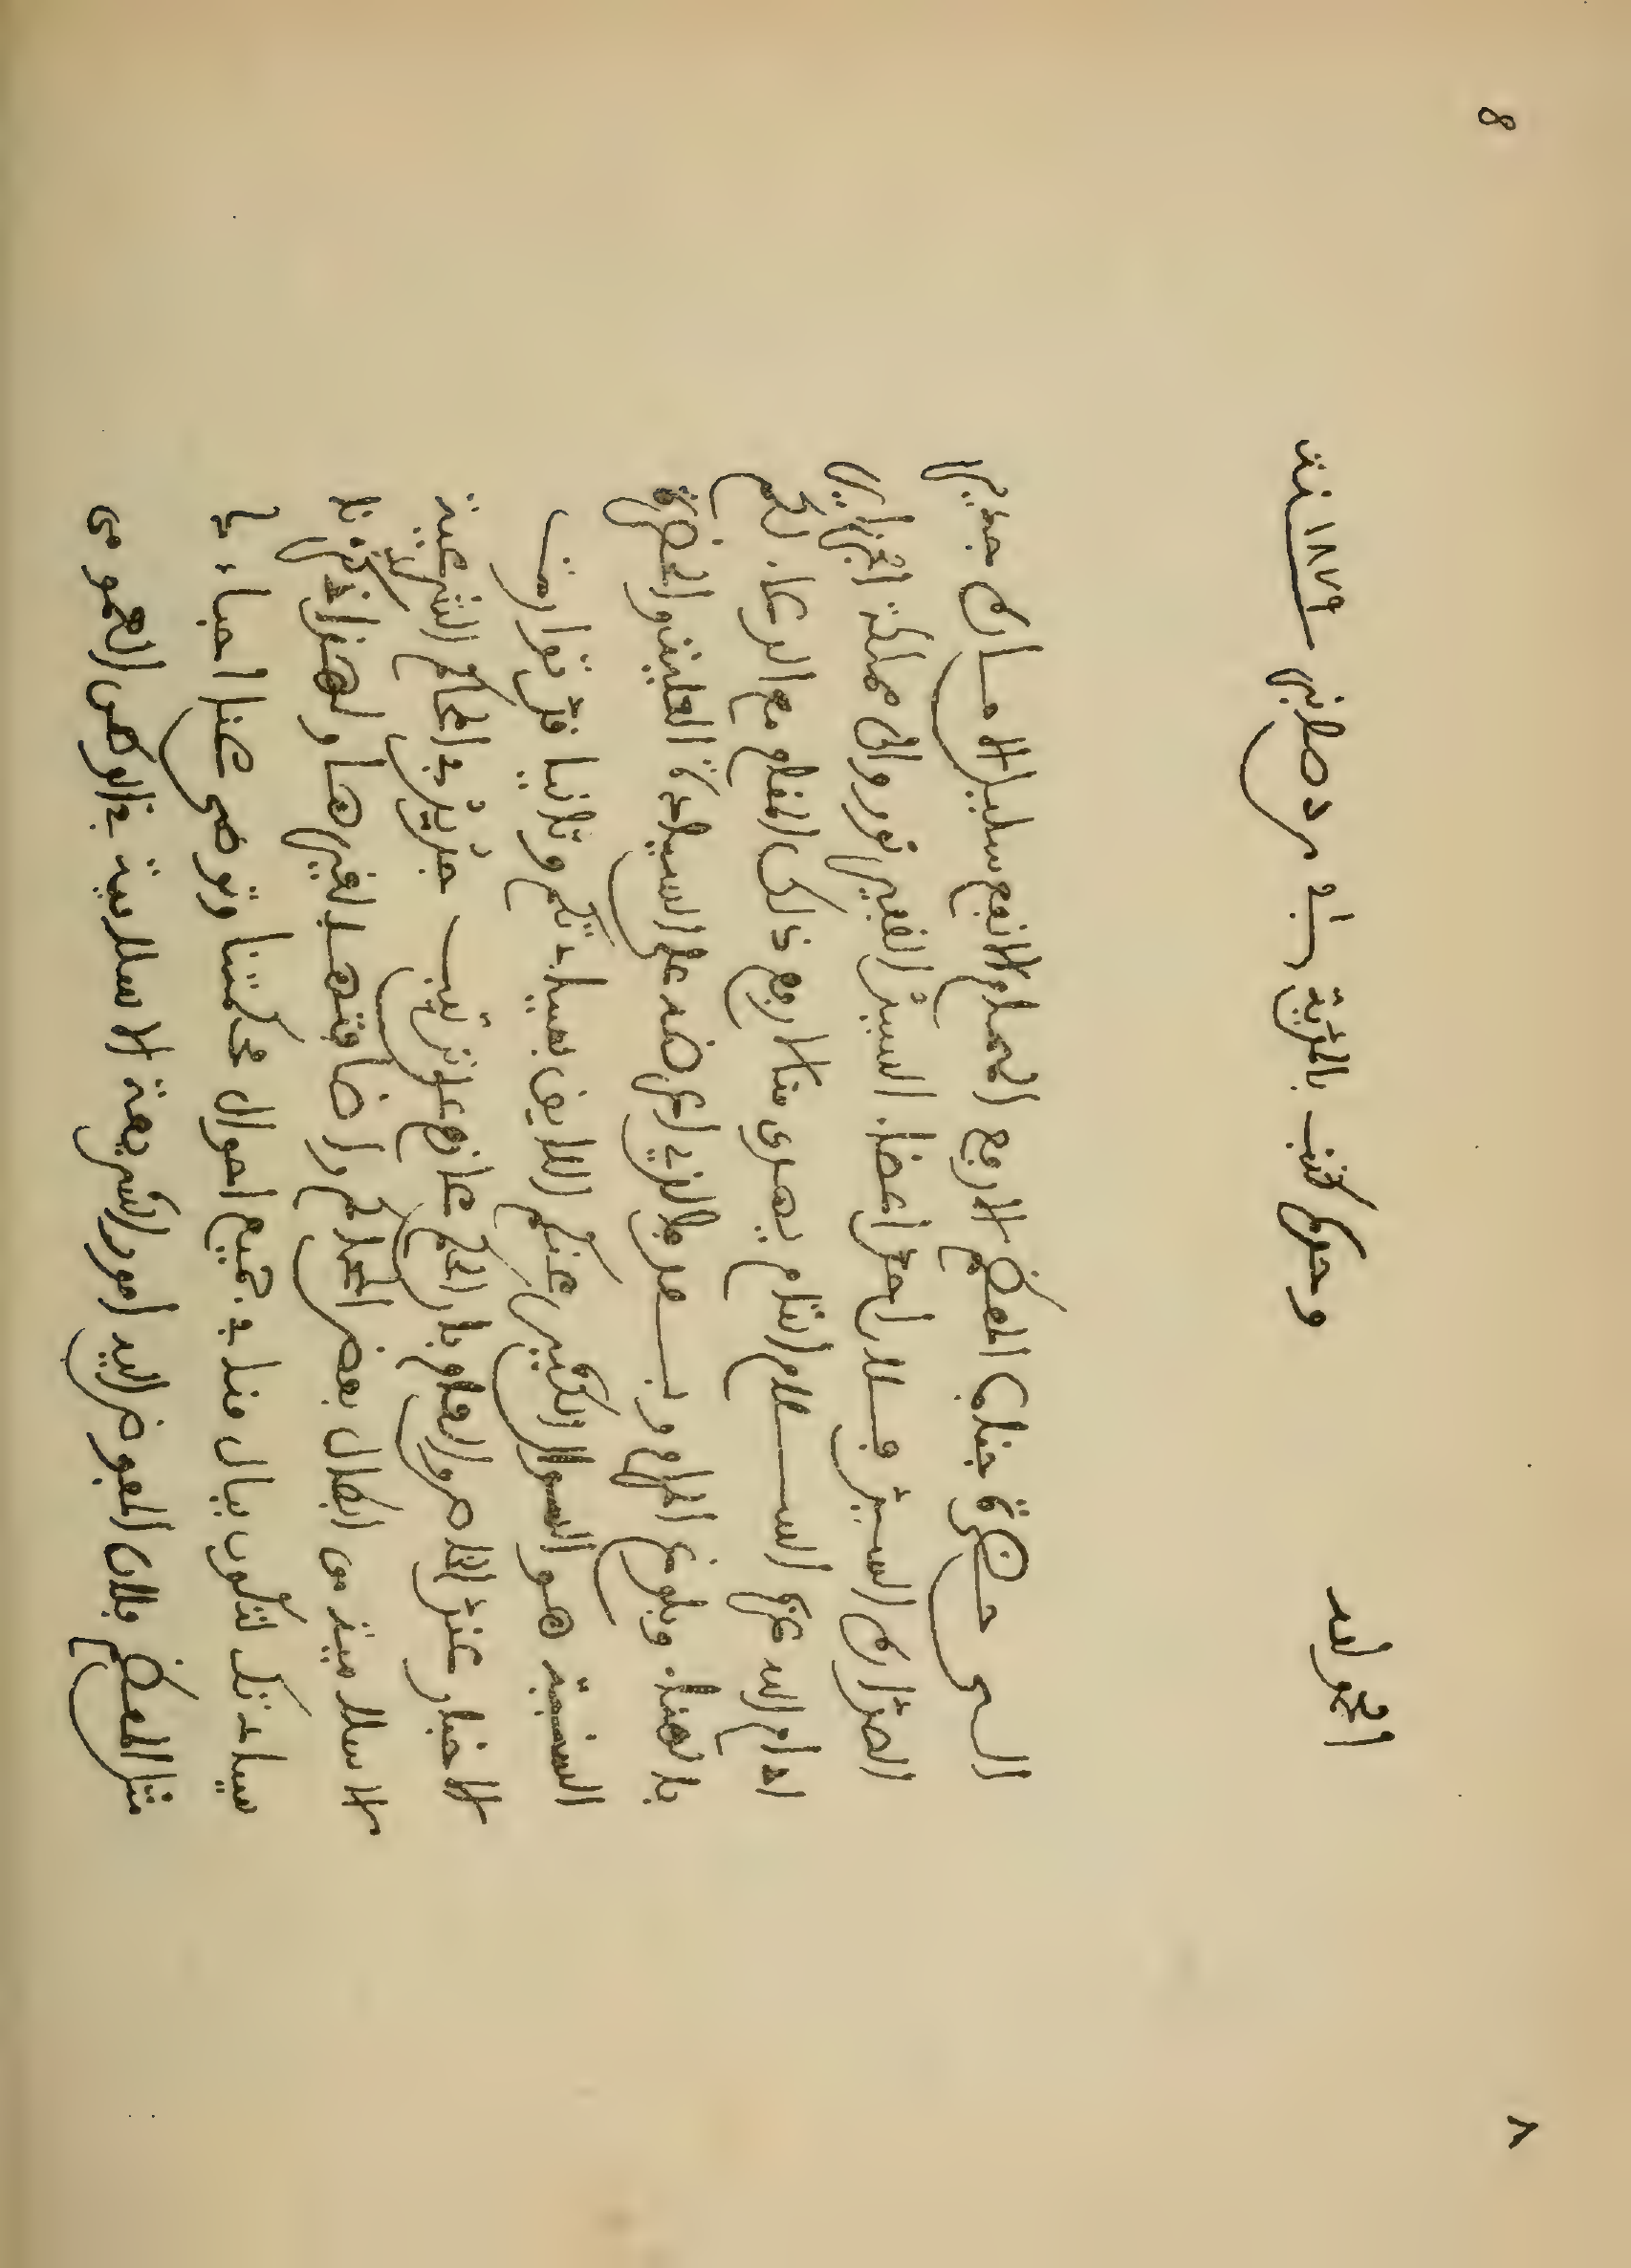 8
الحمد لله وحده كتب بالمدية ١٨٧٩ سنة
الى حضرة جناب المعظم الارفع الهمام الانفع سليل الامارى جدير
الصدارى السيد فلان احد اعضاء السيد نور والى مملكة الجزاير
ادام الله عزكم السلام التام يهدى منا لارفع ذلك المقام مع الدعاء لكم
بالهناء وبلوغ المرام وبعد فالذي اعرضه على السيادة العلية والحضرة
السنية هو السوال الكثير عنكم اللايق بسيادتكم وثانيا قد تواردت
الاخبار عند الخاص والعام بان الحكم عازم على ترتيب جديد في المحاكم الشرعية
الاسلامية من ابطال بعض المحاكم واضافتها لغيرها ولهذا
سيادتك لتكون ببال منا في جميع احوال محكمتنا وتوصى عنا احباء
مثل المعظم فلان المفوض اليه امور الشريعة الاسلامية في الوطن العمومي
٨